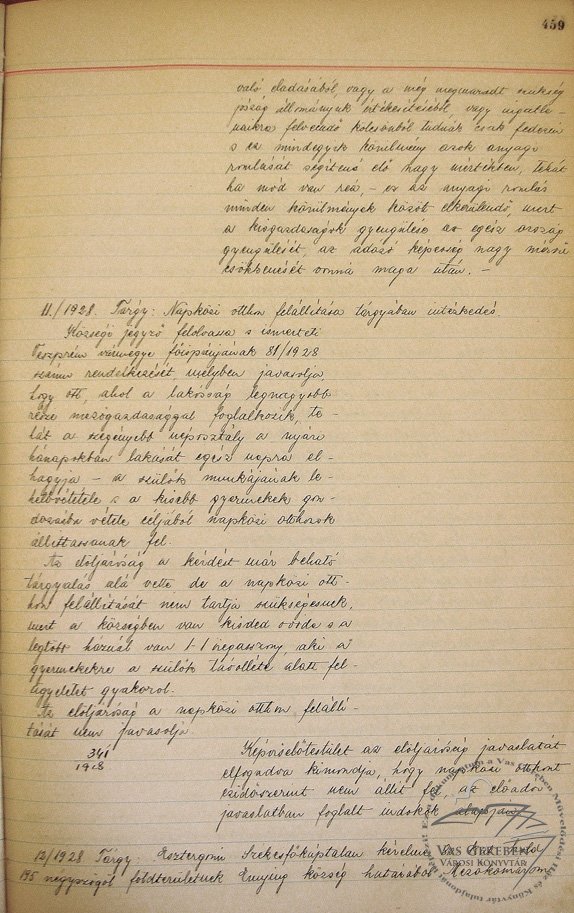 459
való eladásából, vagy a még megmaradt szükség
jószág állományuk értékesítéséből, vagy ingatla-
naikra felveendő kölcsönből tudnák csak fedezni
s ez mindegyik körülmény azok anyagi
romlását segítené elő nagy mértékben, tehát
ha mód van reá – ez az anyagi romlás
minden körülmények között elkerülendő, mert
a kisgazdaságok gyengülése az egész ország
gyengülését, az adózó képesség nagy mérvű
csökkenését vonná maga után. –
11./1928. Tárgy: Napközi otthon felállítása tárgyában intézkedés
Községi jegyző felolvassa s ismerteti
Veszprém vármegye főispánjának 81/1928
számú rendelkezését melyben javasolja
hogy ott, ahol a lakosság legnagyobb
része mezőgazdasággal foglalkozik, te-
hát a szegényebb néposztály a nyári
hónapokban lakását egész napra el-
hagyja – a szülők munkájának le-
hetővététele s a kisebb gyermekek gon-
dozásba vétele céljából napközi otthonok
állíttassanak fel.
Az elöljáróság a kérdést már beható
tárgyalás alá vette de a napközi ott-
hon felállítását nem tartja szükségesnek,
mert a községben van kisded óvoda s a
legtöbb háznál van 1-1 öregasszony, aki a
gyermekekre a szülők távolléte alatt fel-
ügyeletet gyakorol.
Az elöljáróság a napközi otthon felállí-
tását nem javasolja.
Képviselőtestület az elöljáróság javaslatát
elfogadva kimondja, hogy napközi otthont
ezidőszerint nem állít fel, az előadói
javaslatban foglalt indokok alapján.
12/1928 Tárgy: Esztergomi Székesfőkáptalan kérelme
195 négyszögöl földterületnek Enying község határából Mezőkomárom
VAS GEREBEN
VÁROSI KÖNYVTÁR